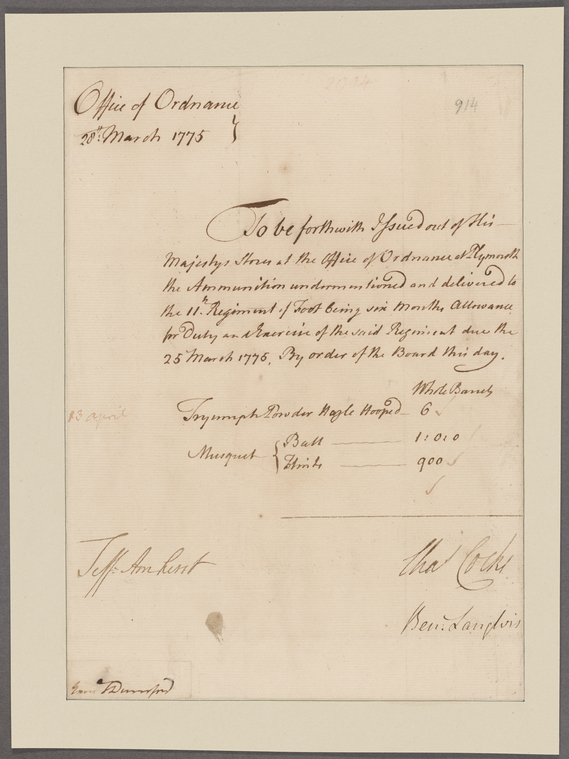 914
Office of Ordnance
28th March 1775
To be forthwith Issued out of His
Majestys Stores at the Office of Ordnance at Plymouth
the Ammunition undermentioned and delivered to
the 11th Regiment of Foot being six Months Allowance
for Duty and Exercise of the said Regiment due the
25 March 1775, By order of the Board this day.
Whole Barrels
Powder Hazle Hooped 6
13 april
Musquet { Ball 1:0:0
Flints 900
Jeff: Amherst
Chas Cocks
Ben: Langlois